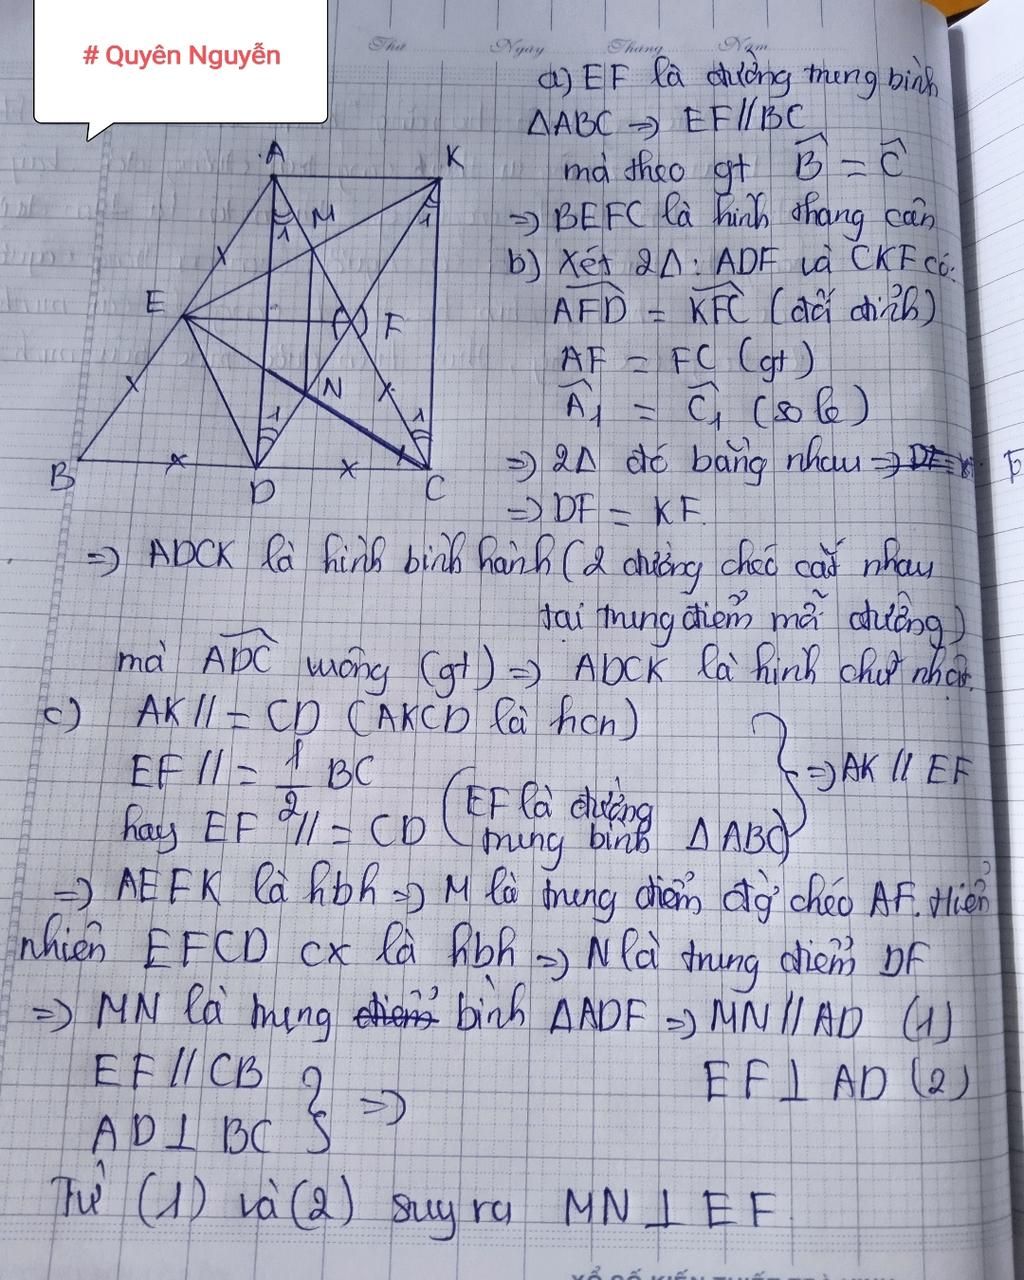 # Quyên Nguyễn
Thứ Ngày Tháng Năm
a) EF là đường trung bình
ΔABC => EF // BC
mà theo gt B̂ = Ĉ
=> BEFC là hình thang cân
b) Xét 2Δ: ADF và CKF có:
AFD = KFC (đối đỉnh)
AF = FC (gt)
Â₁ = Ĉ₁ (so le)
=> 2Δ đó bằng nhau =>
=> DF = KF.
A K
M
1 1
E F
N
1 1
B D C
=> ADCK là hình bình hành (2 đường chéo cắt nhau
tại trung điểm mỗi đường)
mà ADC vuông (gt) => ADCK là hình chữ nhật.
c) AK // = CD (AKCD là hcn)
EF // = 1/2 BC
hay EF // = CD (EF là đường trung bình ΔABC) } => AK // EF
=> AEFK là hbh => M là trung điểm đg' chéo AF. Hiển
nhiên EFCD cx là hbh => N là trung điểm DF
=> MN là trung điểm bình ΔADF => MN // AD (1)
EF // CB
AD ⊥ BC } => EF ⊥ AD (2)
Từ (1) và (2) suy ra MN ⊥ EF.